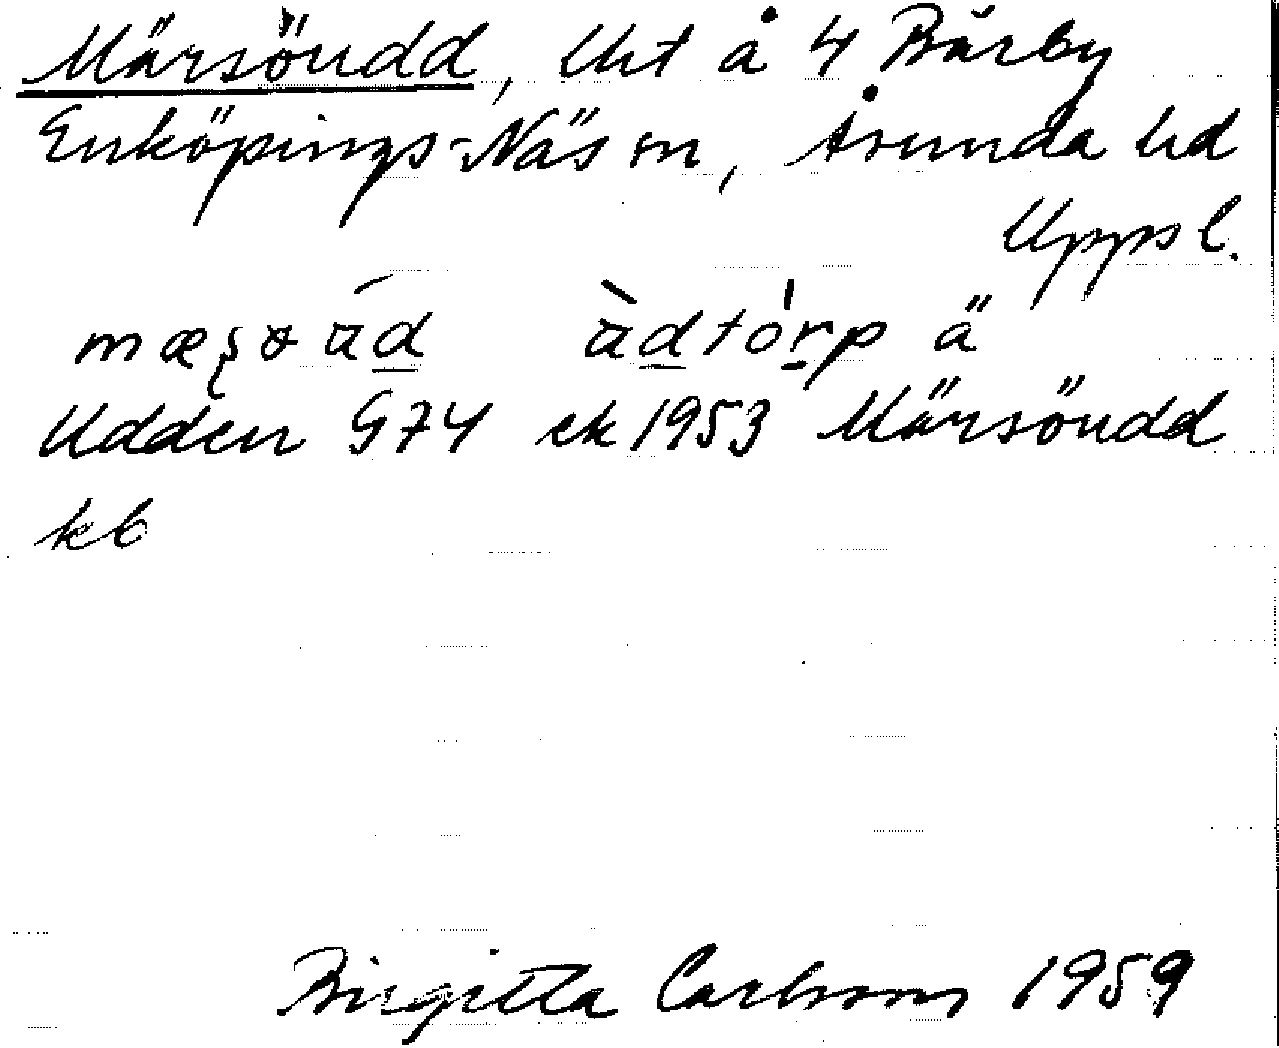 Märsöudd, lht å 4 Bärby
Enköpings-Näs sn, Åsunda hd
Uppsl.
ä
Udden G74 ek 1953 Märsöudd
kb
Birgitta Carlsson 1959